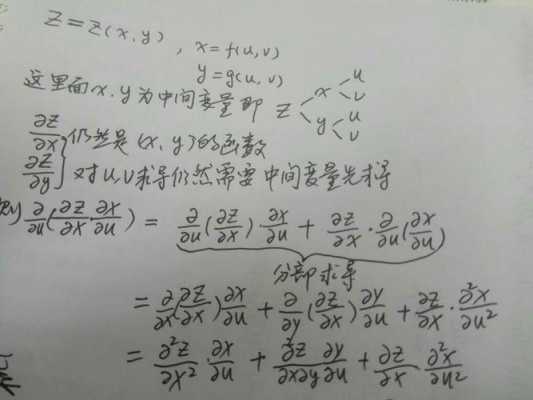 Z = Z(x, y) , x = f(u, v)
y = g(u, v)
这里面x, y 为中间变量即 Z < x < u v , y < u v
∂Z/∂x ∂Z/∂y } 仍然是(x, y)的函数
对u, v求导仍然需要中间变量先求导
则 ∂/∂u(∂Z/∂x · ∂x/∂u) = ∂/∂u(∂Z/∂x) · ∂x/∂u + ∂Z/∂x · ∂/∂u(∂x/∂u)
分部求导
= ∂/∂x(∂Z/∂x) ∂x/∂u + ∂/∂y(∂Z/∂x) ∂y/∂u + ∂Z/∂x · ∂²x/∂u²
= ∂²Z/∂x² · ∂x/∂u + ∂²Z/∂x∂y ∂y/∂u + ∂Z/∂x · ∂²x/∂u²